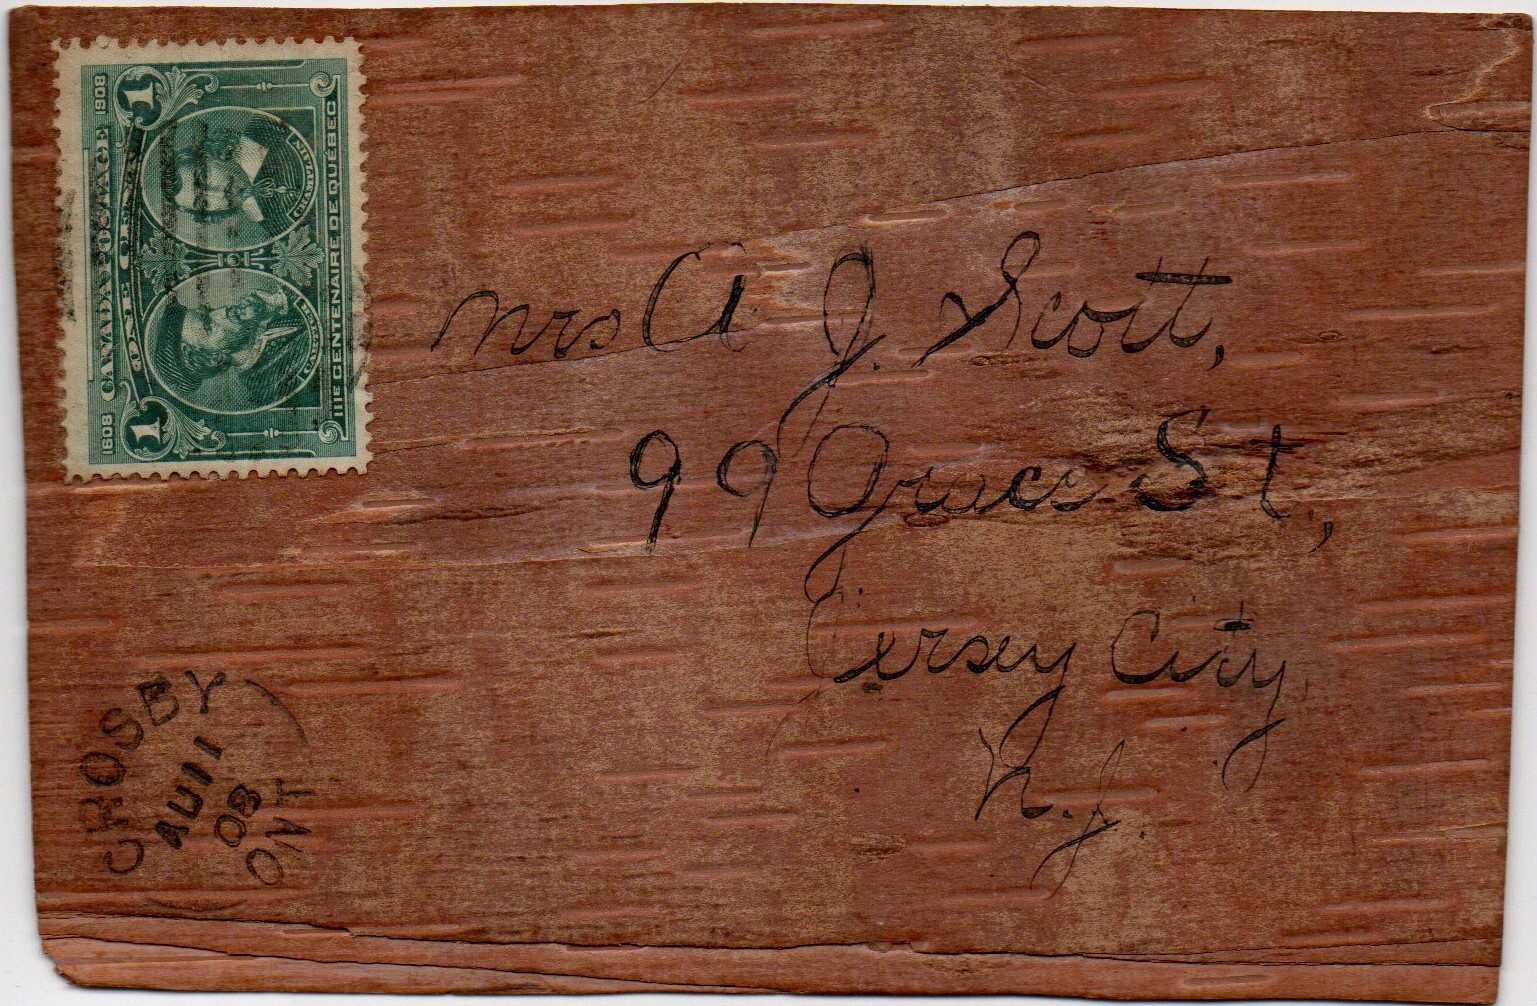 1608 CANADA POSTAGE 1908
1 ONE CENT 1
CARTIER CHAMPLAIN
IIIE CENTENAIRE DE QUÉBEC
Mrs A J. Scott,
99 Grace St,
Jersey City,
N.J.
CROSBY
AU 11
08
ONT